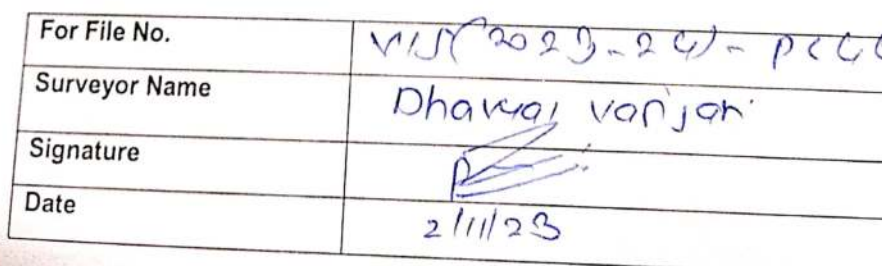 For File No. VIS(2023-24)-PL
Surveyor Name Dhaval Vanjari
Signature
Date 2/11/23